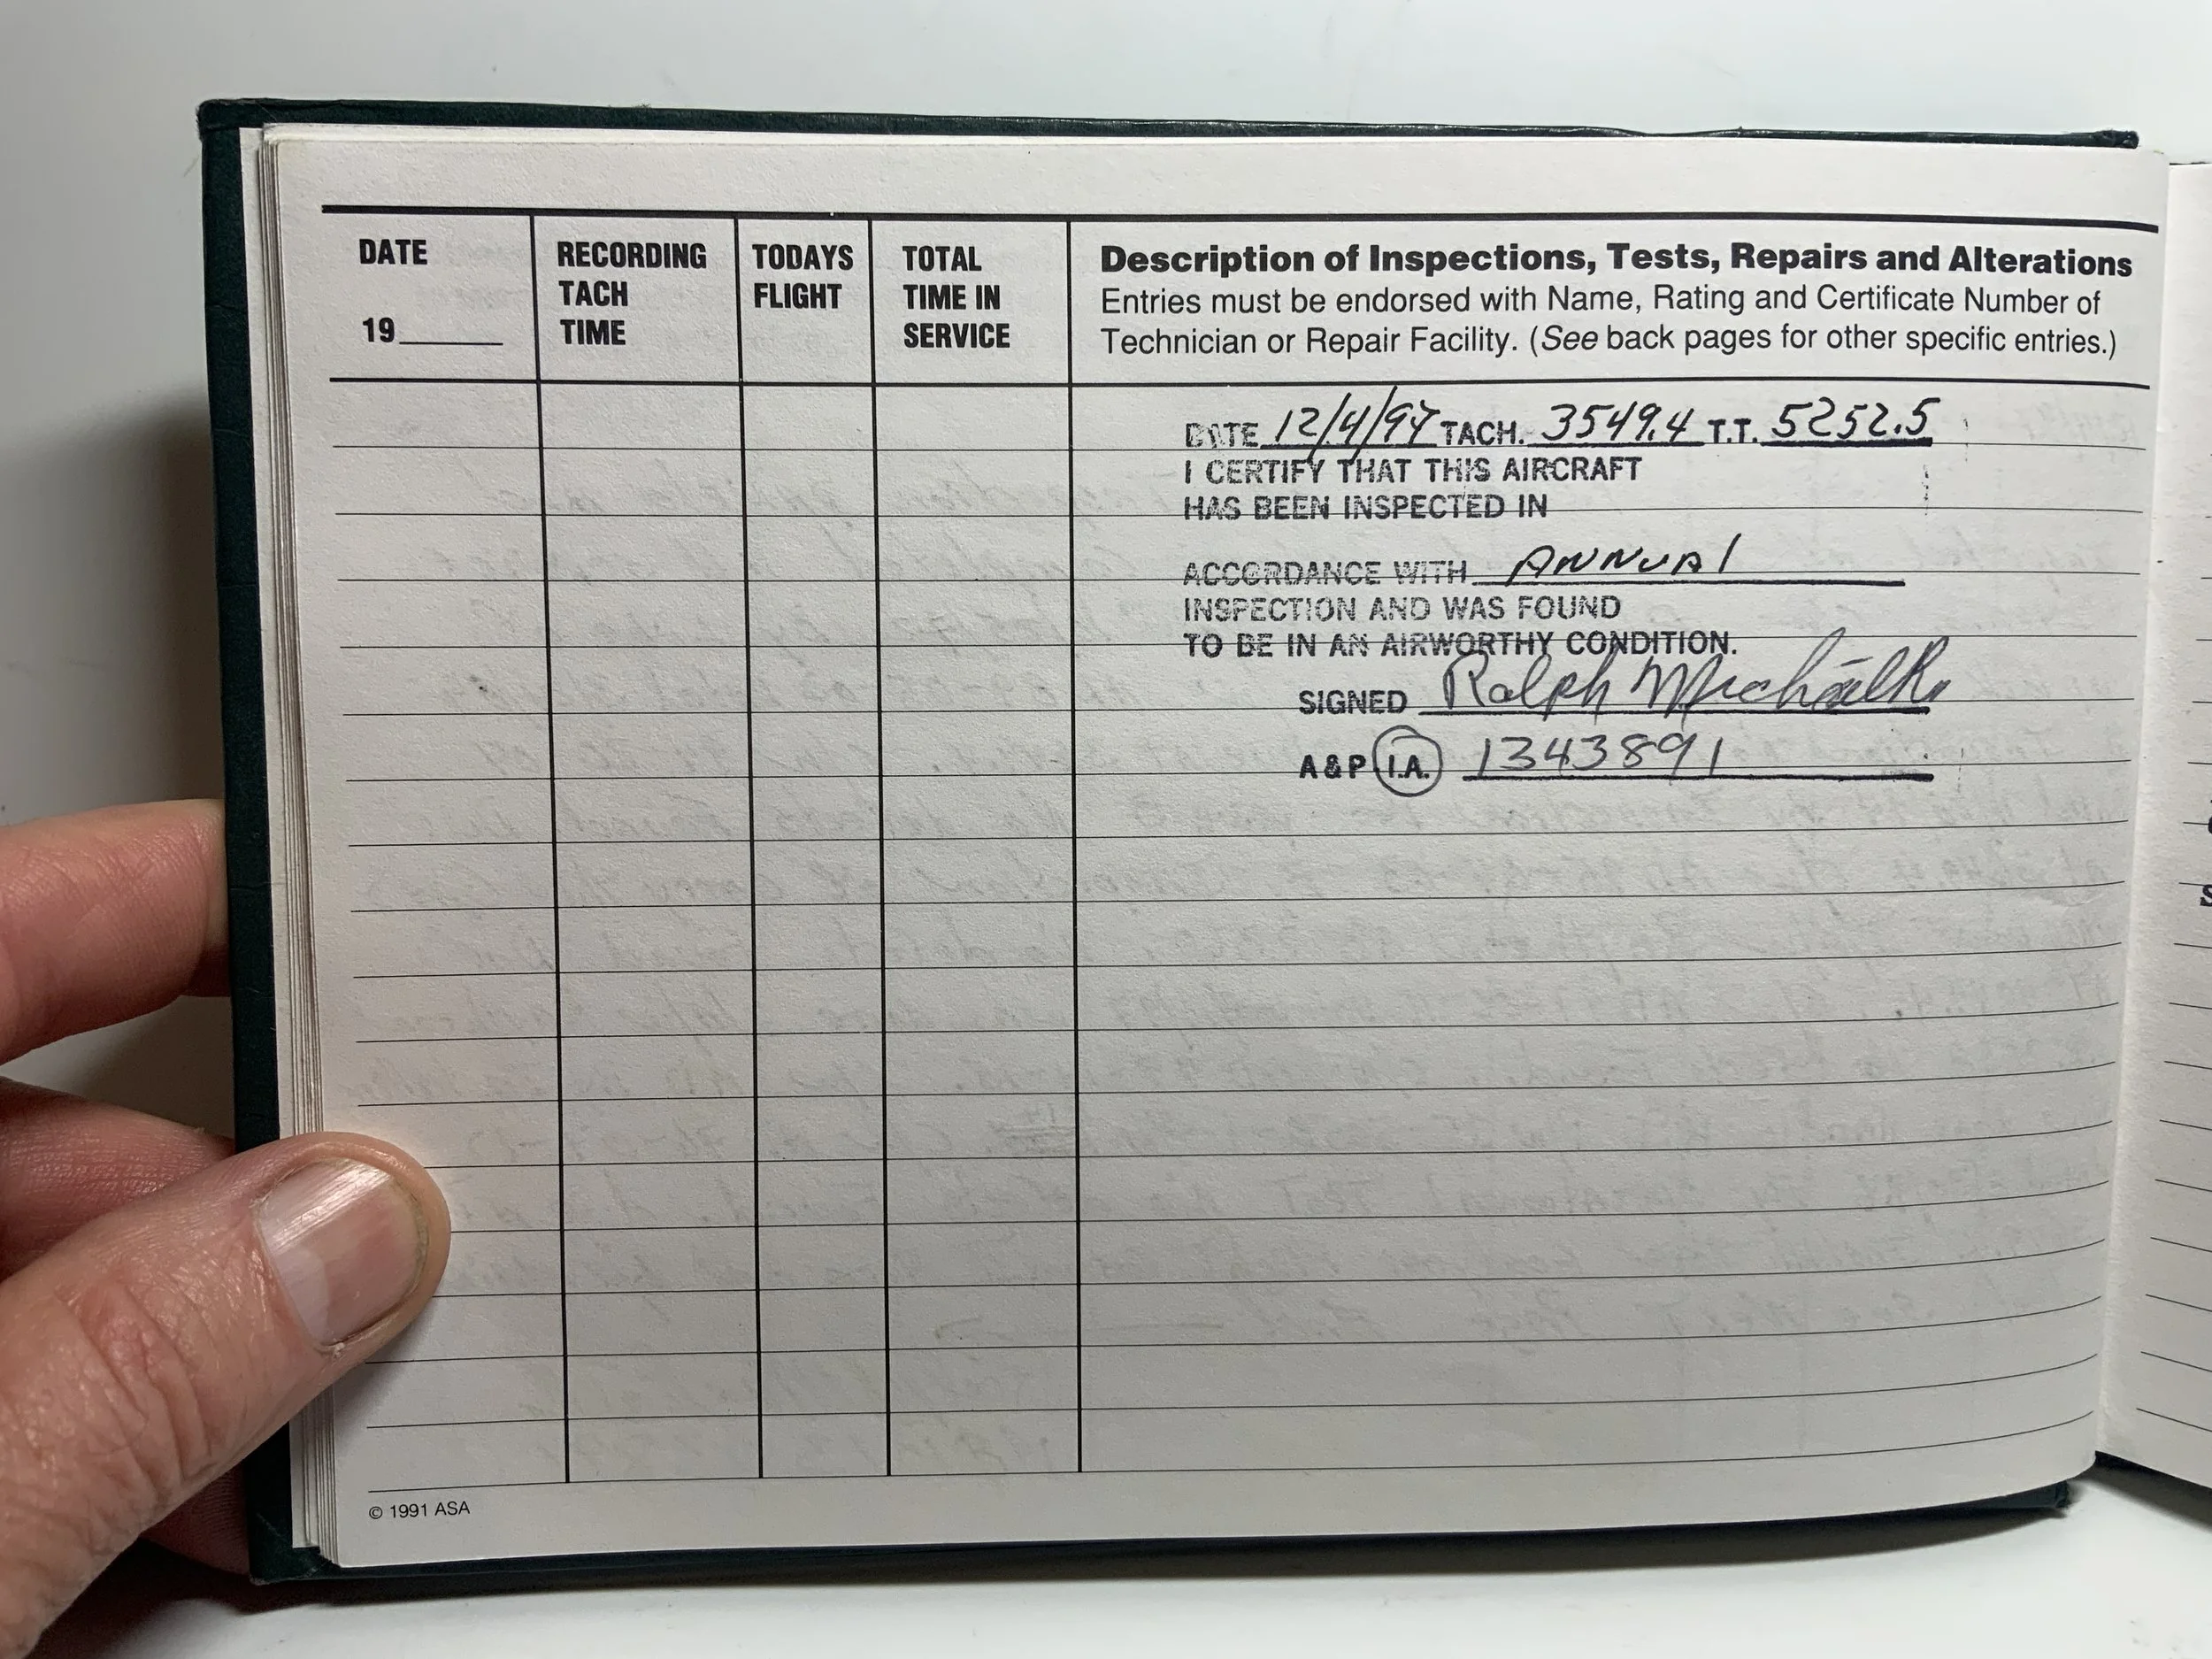 DATE
19
RECORDING
TACH
TIME
TODAYS
FLIGHT
TOTAL
TIME IN
SERVICE
Description of Inspections, Tests, Repairs and Alterations
Entries must be endorsed with Name, Rating and Certificate Number of
Technician or Repair Facility. (See back pages for other specific entries.)
DATE 12/4/97 TACH. 3549.4 T.T. 5252.5
I CERTIFY THAT THIS AIRCRAFT
HAS BEEN INSPECTED IN
ACCORDANCE WITH ANNUAl
INSPECTION AND WAS FOUND
TO BE IN AN AIRWORTHY CONDITION.
SIGNED Ralph
A & P I.A. 1343891
© 1991 ASA